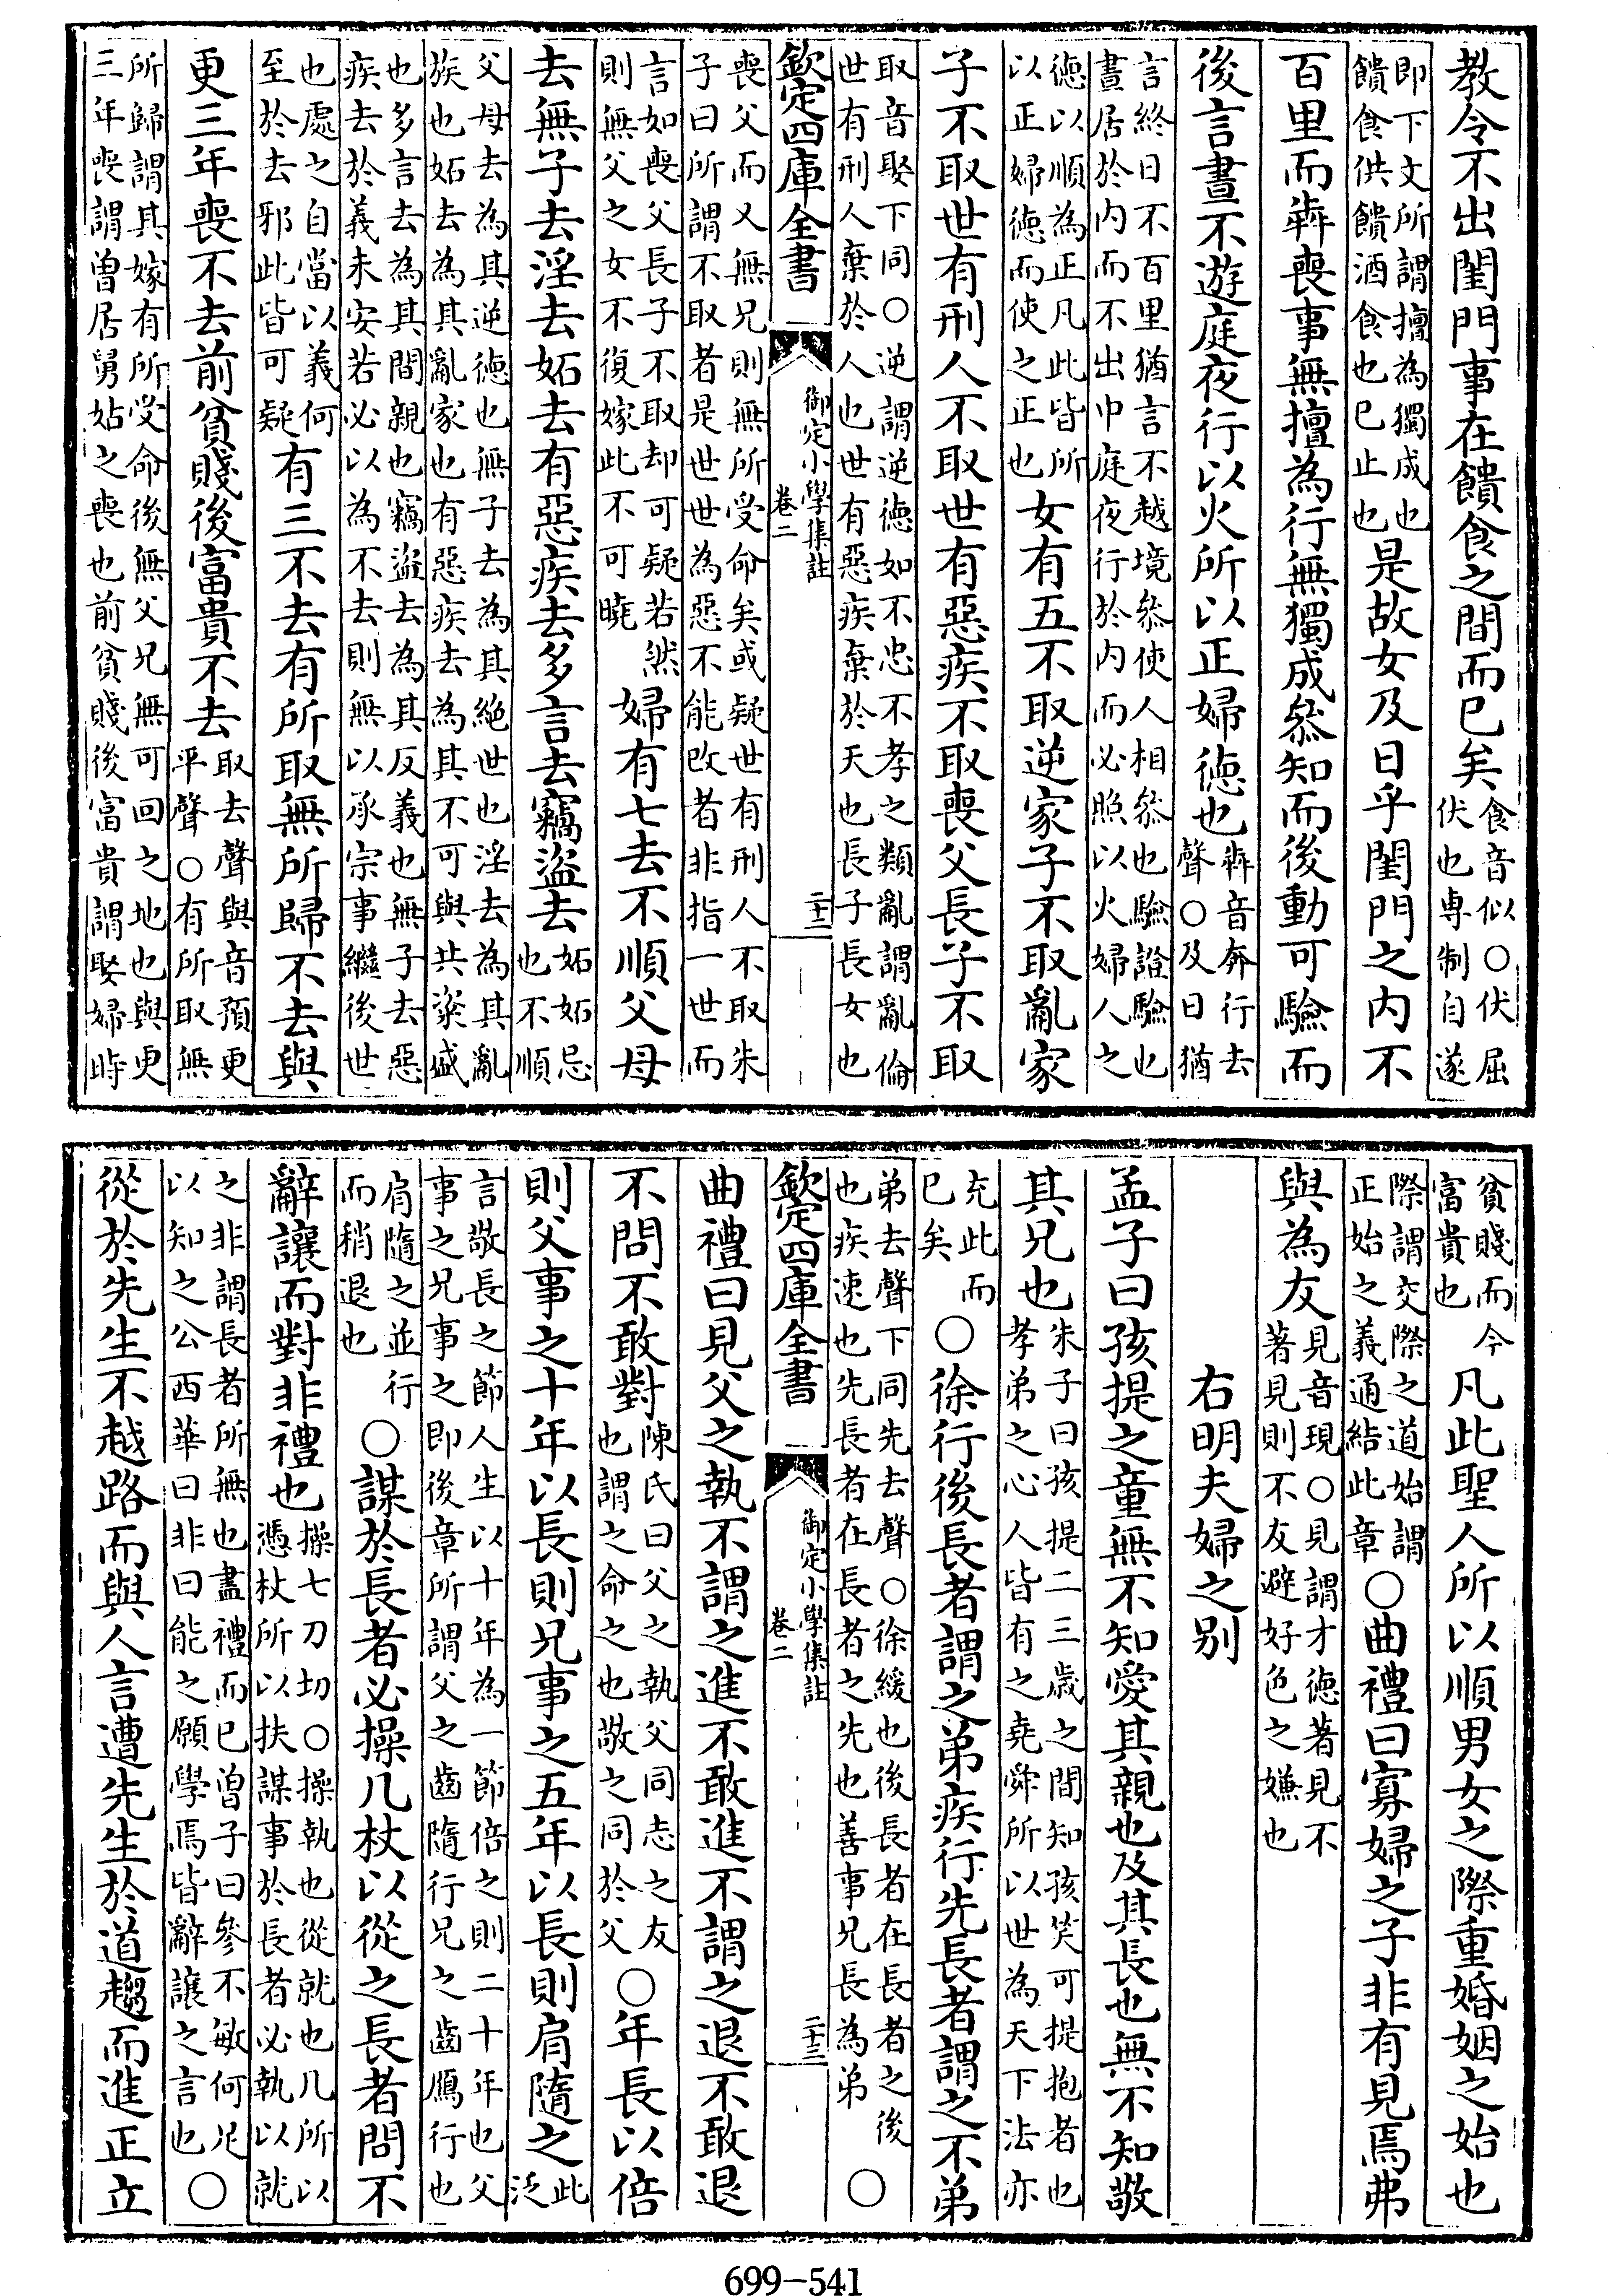 教令不出閨門事在饋食之間而已矣食音似○伏屈伏也専制自遂
即下文所謂擅為獨成也饋食供饋酒食也已止也是故女及日乎閨門之内不
百里而犇喪事無擅為行無獨成叅知而後動可驗而
後言晝不遊庭夜行以火所以正婦徳也犇音奔行去聲○及日猶
言終日不百里猶言不越境叅使人相叅也驗證驗也
晝居於内而不出中庭夜行於内而必照以火婦人之
徳以順為正凡此皆所以正婦徳而使之正也女有五不取逆家子不取亂家
子不取世有刑人不取世有惡疾不取喪父長子不取
取音娶下同○逆謂逆徳如不忠不孝之類亂謂亂倫
世有刑人棄於人也世有惡疾棄於天也長子長女也
欽定四庫全書
御定小學集註
卷二
二十二
喪父而又無兄則無所受命矣或疑世有刑人不取朱
子曰所謂不取者是世世為惡不能改者非指一世而
言如喪父長子不取却可疑若然則無父之女不復嫁此不可曉婦有七去不順父母
去無子去淫去妬去有惡疾去多言去竊盜去妬妬忌也不順
父母去為其逆徳也無子去為其絶世也淫去為其亂
族也妬去為其亂家也有惡疾去為其不可與共粢盛
也多言去為其間親也竊盜去為其反義也無子去惡
疾去於義未安若必以為不去則無以承宗事繼後世
也處之自當以義何至於去邪此皆可疑有三不去有所取無所歸不去與
更三年喪不去前貧賤後富貴不去取去聲與音預更平聲○有所取無
所歸謂其嫁有所受命後無父兄無可回之地也與更
三年喪謂曽居舅姑之喪也前貧賤後富貴謂娶婦時
貧賤而今富貴也凡此聖人所以順男女之際重婚姻之始也
際謂交際之道始謂正始之義通結此章○曲禮曰寡婦之子非有見焉弗
與為友見音現○見謂才徳著見不著見則不友避好色之嫌也
右明夫婦之别
孟子曰孩提之童無不知愛其親也及其長也無不知敬
其兄也朱子曰孩提二三歳之間知孩笑可提抱者也孝弟之心人皆有之堯舜所以世為天下法亦
充此而已矣○徐行後長者謂之弟疾行先長者謂之不弟
弟去聲下同先去聲○徐緩也後長者在長者之後
也疾速也先長者在長者之先也善事兄長為弟○
欽定四庫全書
御定小學集註
卷二
二十三
曲禮曰見父之執不謂之進不敢進不謂之退不敢退
不問不敢對陳氏曰父之執父同志之友也謂之命之也敬之同於父○年長以倍
則父事之十年以長則兄事之五年以長則肩隨之此泛
言敬長之節人生以十年為一節倍之則二十年也父
事之兄事之即後章所謂父之齒隨行兄之齒鴈行也
肩隨之並行而稍退也○謀於長者必操几杖以從之長者問不
辭讓而對非禮也操七刀切○操執也從就也几所以憑杖所以扶謀事於長者必執以就
之非謂長者所無也盡禮而已曽子曰參不敏何足
以知之公西華曰非曰能之願學焉皆辭讓之言也○
從於先生不越路而與人言遭先生於道趨而進正立
699-541